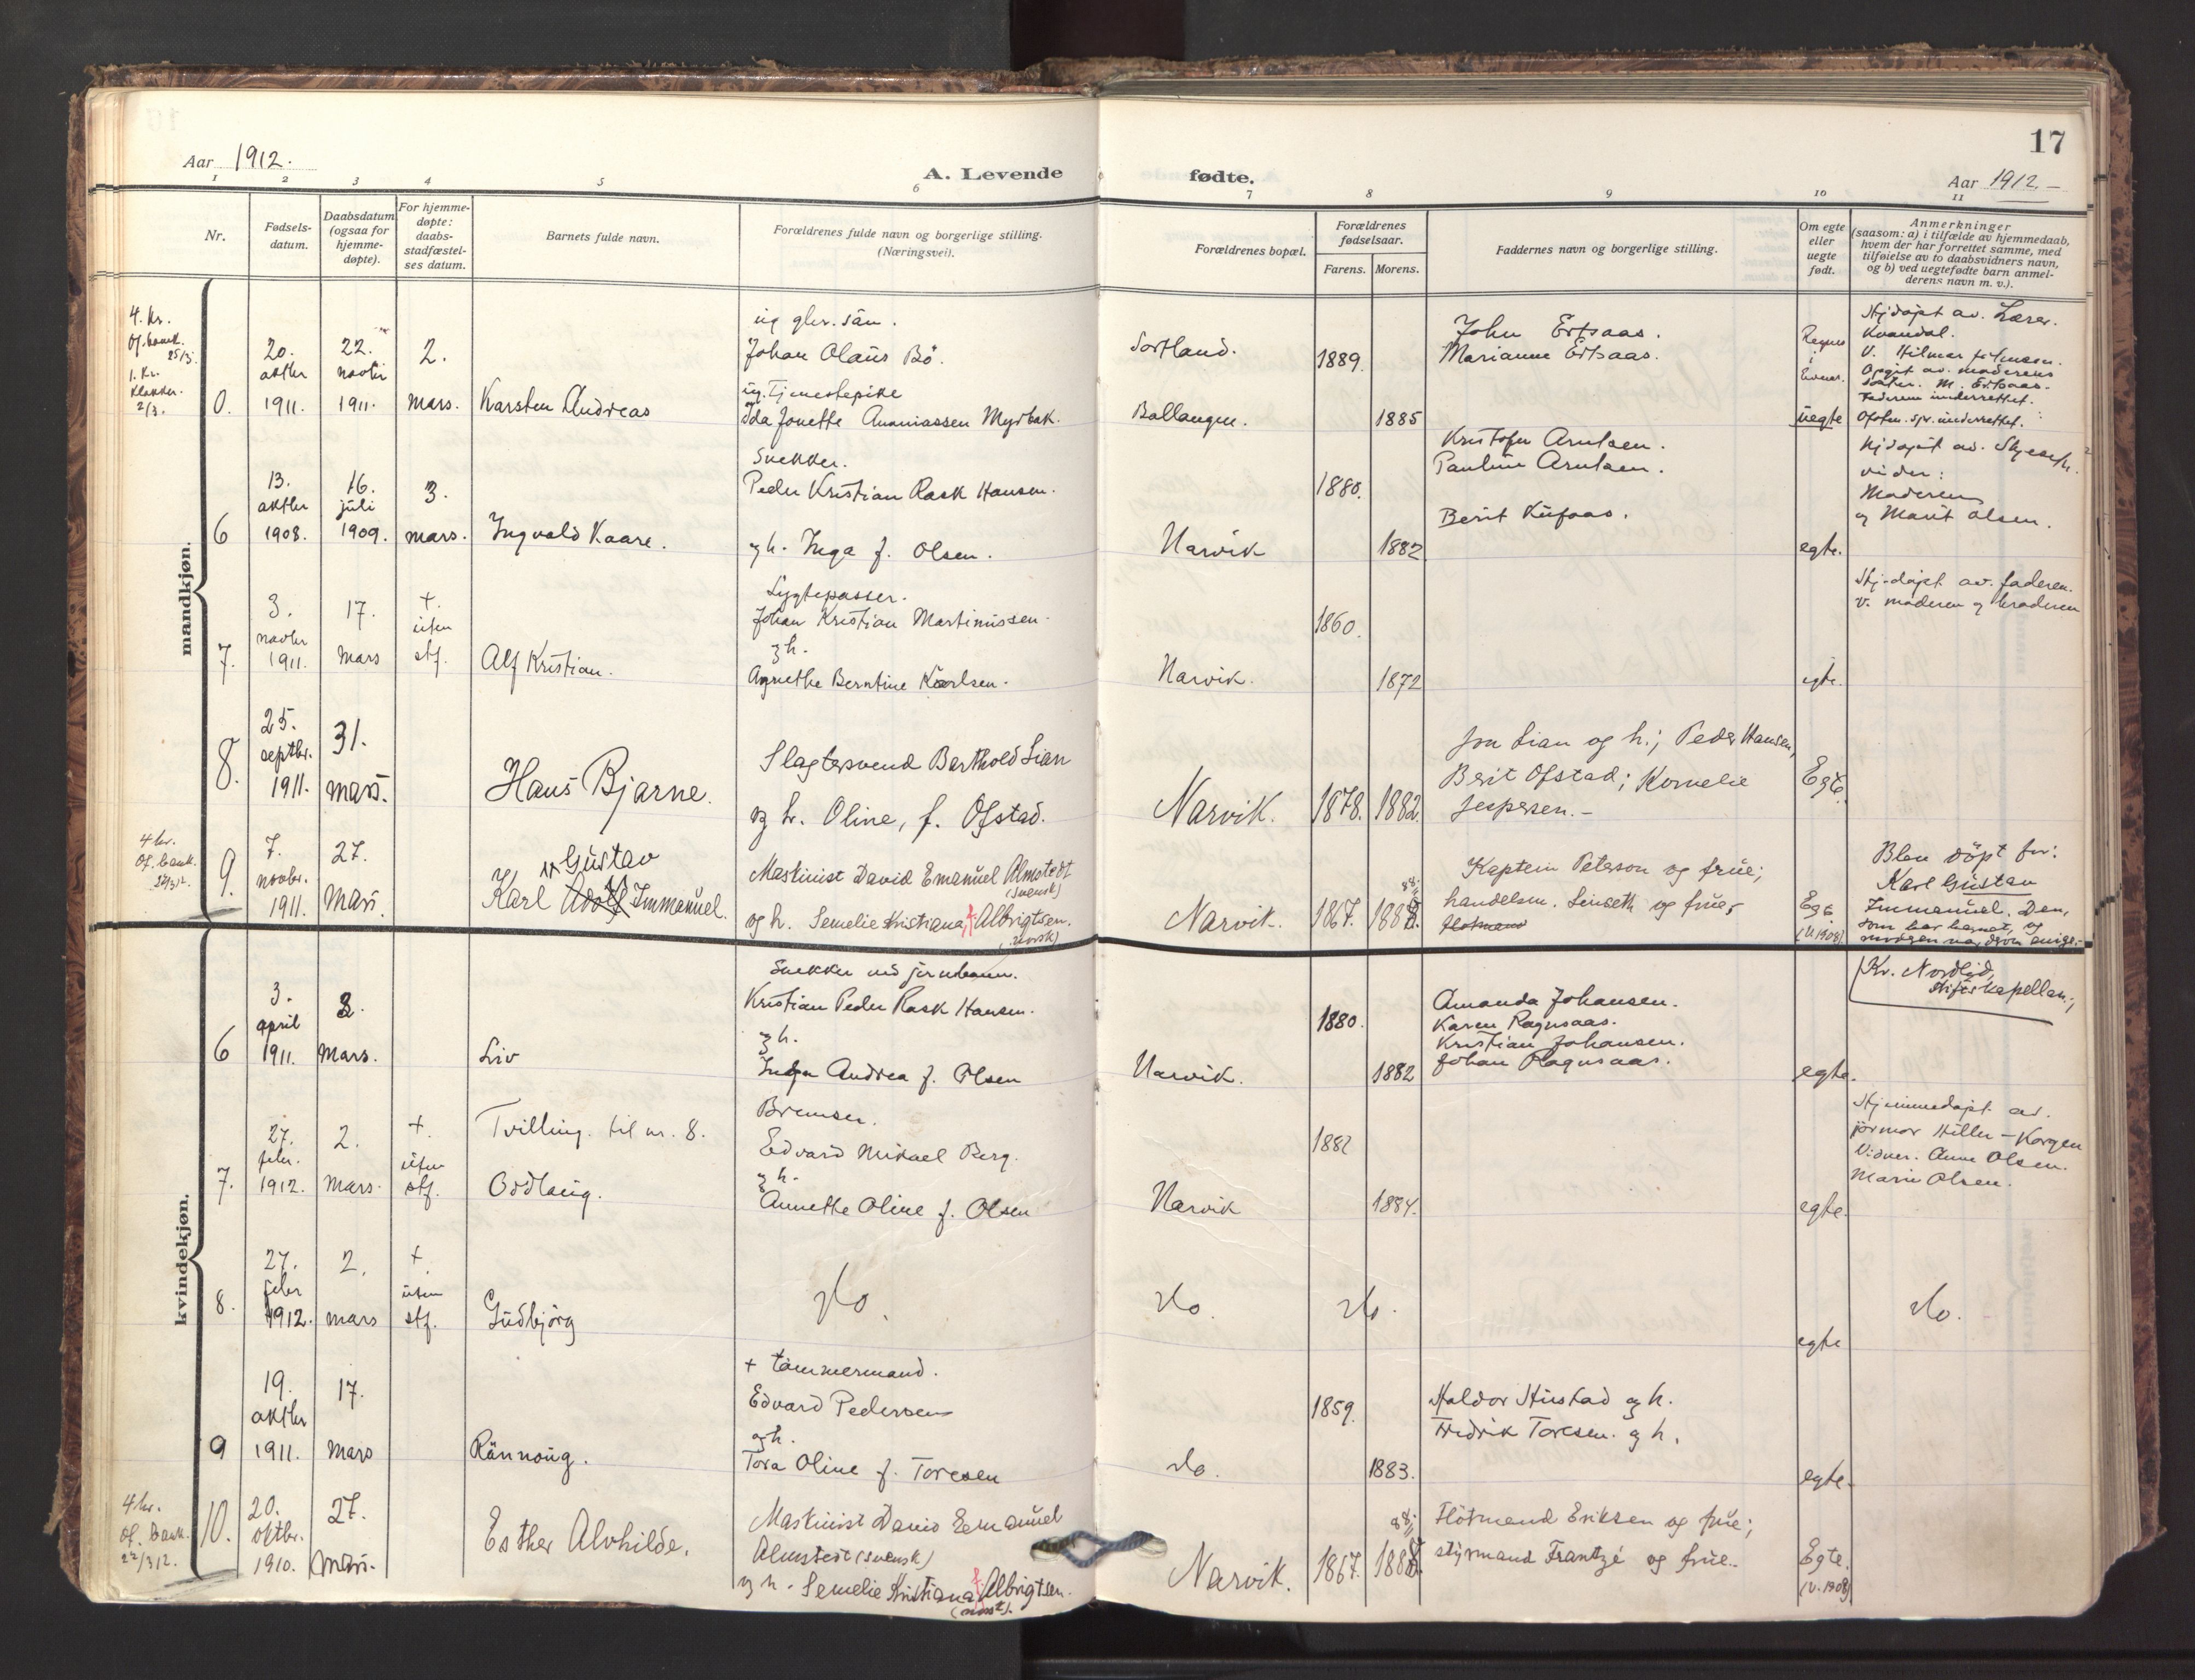 17
Aar 1912.
A. Levende fødte.
Aar 1912.
1 2 3 4 5 6 7 8 9 10 11
Nr.
Fødsels-
datum.
Daabsdatum
(ogsaa for
hjemme-
døpte).
For hjemme-
døpte:
daabs-
stadfæstel-
ses datum.
Barnets fulde navn.
Forældrenes fulde navn og borgerlige stilling.
(Næringsvei).
Forældrenes bopæl.
Forældrenes
fødselsaar.
Farens. Morens.
Faddernes navn og borgerlige stilling.
Om egte
eller
uegte
født.
Anmerkninger
(saasom: a) i tilfælde av hjemmedaab,
hvem der har forrettet samme, med
tilføielse av to daabsvidners navn,
og b) ved uegtefødte barn anmel-
derens navn m. v.).
mandkjøn.
4. Kr.
Of. bank.
25/3.
1. Kr.
Klokker.
2/3.
0.
20.
oktbr
1911.
22.
novbr
1911.
2.
mars.
Karsten Andreas
Johan Olaus Bö.
ug. Tjenestepike
Ida Jonette Annaniassen Myrbak.
Sortland.
Ballangen.
1889.
1885
John Ertsaas.
Marianne Ertsaas.
uegte
Hjdøpt av. Lærer.
Kvandal.
Faderen underrettet.
6
13.
oktbr
1908.
16.
juli
1909.
3.
mars.
Ingvald Kaare.
Snekker.
Peder Kristian Rask Hansen.
og h. Inga f. Olsen.
Narvik
1880.
1882
Kristofer Arntsen.
Pauline Arntsen.
Berit
egte.
Hjdøpt av.
Moderen
og Marit Olsen.
7.
3.
novbr
1911.
17.
Mars
+.
uten
stf.
Alf Kristian.
Lygtepasser.
Johan Kristian Martinussen.
og h.
Agnethe Berntine Karlsen.
Narvik.
1860.
1872
egte.
Hj-døpt av. faderen.
v. moderen og broderen
8.
25.
septbr.
1911.
31.
mars.
Hans Bjarne.
Slagtersvend Barthold Lian
og h. Oline, f. Ofstad.
Narvik.
1878.
1882.
Lian og h.; Peder Hansen,
Berit Ofstad; Kornelie
Jespersen.-
Egte.
4 kr.
Of. bank.
9.
7.
novbr.
1911.
27.
Mars.
v Gustav
Karl Adolf Immanuel.
Maskinist David Emanuel Almstedt
(svensk)
og h. Semelie Kristiana, f. Albrigtsen.
(norsk)
Narvik.
1867.
88;
Kaptein Peterson og frue;
handelsm. Linseth og frue;
Flotmand
Egte.
(V. 1908)
Blev döpt for:
Karl Gustav
Immanuel. Den,
som bar barnet, og
moderen var derom enige.-
Kr. Nordlid,
stiftskapellan.;
kvindekjøn.
6
3.
april
1911.
3.
Mars.
Liv
Snekker ved jernbanen.
Kristian Peder Rask Hansen.
og h.
Inga Andrea f. Olsen
Narvik.
1880.
1882
Amanda Johansen.
Karen Ragnsaas.
Kristian Johansen.
Johan Ragnsaas.
egte.
7.
27.
febr.
1912.
2.
Mars.
+.
uten
stf.
Tvilling. til nr. 8.
Oddlaug.
Bremser.
Edvard Mikael Berg.
og h.
Annette Oline f. Olsen
Narvik
1882
1884.
egte.
Hjemmedøpt av.
jormor Hiller-Korgen
Vidner. Anne Olsen.
Marie Olsen.
8.
27.
febr
1912.
2.
mars
+.
uten
stf.
Gudbjörg
do.
do.
do.
egte
do.
9
19.
oktbr
1911.
17.
Mars
Rannoug.
+ tömmermand.
Edvard Pedersen
og h.
Tora Oline f. Toresen
do.
1859.
1883.
Haldor Hustad og h.
Fredrik Toresen. og h.
egte.
4 kr.
Of. bank.
22/3 12.
10.
20.
oktbr.
1910.
27.
Mars.
Esther Alvhilde.
Maskinist David Eemanuel
Almstedt (svensk)
og h. Semelie Kristiana, f. Albrigtsen.
(norsk).
Narvik.
1867.
88;
Flötmand Eriksen og frue;
styrmand Frantzé og frue.
Egte.
(V. 1908)